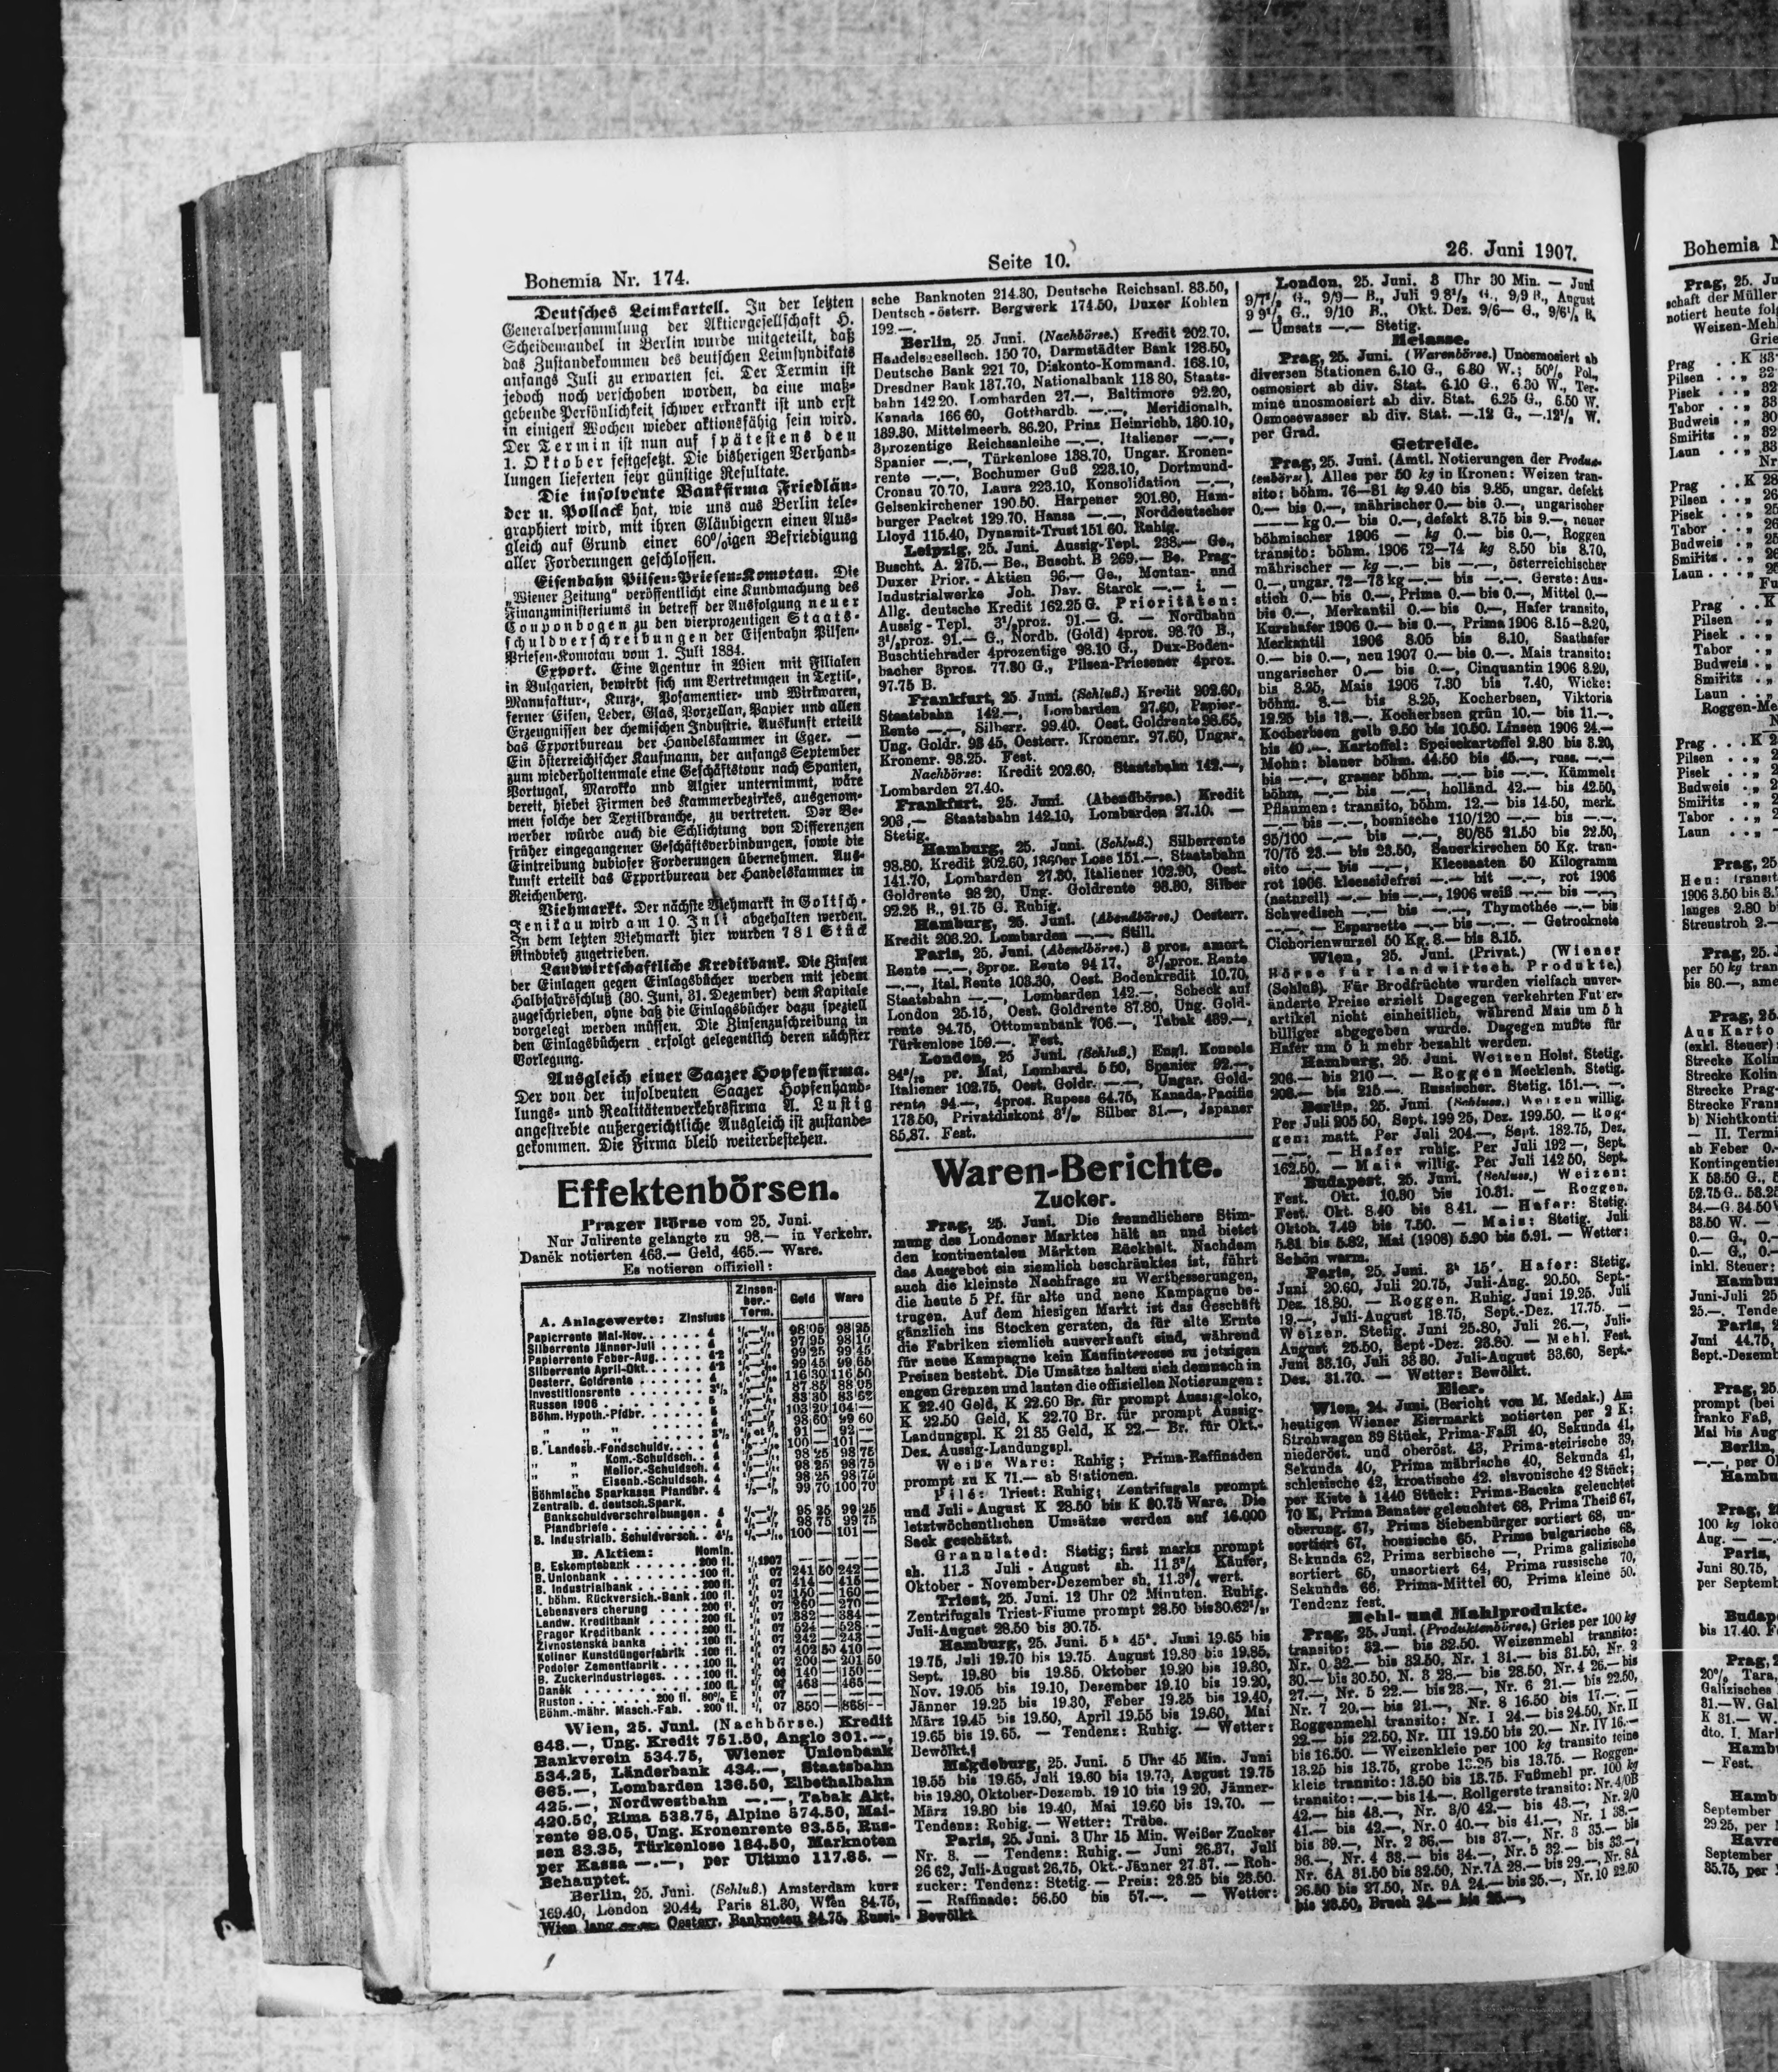 Bohemia Nr. 174.
Seite 10.
26. Juni 1907.
Deutsches Leimkartell. In der letzten
Generalversammlung der Aktiengesellschaft H.
Scheidemandel in Berlin wurde mitgeteilt, daß
das Zustandekommen des deutschen Leimsyndikats
anfangs Juli zu erwarten sei. Der Termin ist
jedoch noch verschoben worden, da eine maß-
gebende Persönlichkeit schwer erkrankt ist und erst
in einigen Wochen wieder aktionsfähig sein wird.
Der Termin ist nun auf spätestens den
1. Oktober festgesetzt. Die bisherigen Verhand-
lungen lieferten sehr günstige Resultate.
Die insolvente Bankfirma Friedlän-
der u. Pollack hat, wie uns aus Berlin tele-
graphiert wird, mit ihren Gläubigern einen Aus-
gleich auf Grund einer 60%igen Befriedigung
aller Forderungen geschlossen.
Eisenbahn Pilsen-Priesen-Komotau. Die
„Wiener Zeitung" veröffentlicht eine Kundmachung des
Finanzministeriums in betreff der Ausfolgung neuer
Couponbogen zu den vierprozentigen Staats-
schuldverschreibungen der Eisenbahn Pilsen-
Priesen-Komotau vom 1. Juli 1884.
Export. Eine Agentur in Wien mit Filialen
in Bulgarien, bewirbt sich um Vertretungen in Textil-,
Manufaktur-, Kurz-, Posamentier- und Wirkwaren,
ferner Eisen, Leder, Glas, Porzellan, Papier und allen
Erzeugnissen der chemischen Industrie. Auskunft erteilt
das Exportbureau der Handelskammer in Eger. —
Ein österreichischer Kaufmann, der anfangs September
zum wiederholtenmale eine Geschäftstour nach Spanien,
Portugal, Marokko und Algier unternimmt, wäre
bereit, hiebei Firmen des Kammerbezirkes, ausgenom-
men solche der Textilbranche, zu vertreten. Der Be-
werber würde auch die Schlichtung von Differenzen
früher eingegangener Geschäftsverbindungen, sowie die
Eintreibung dubioser Forderungen übernehmen. Aus-
kunft erteilt das Exportbureau der Handelskammer in
Reichenberg.
Viehmarkt. Der nächste Viehmarkt in Goltsch-
Jenikau wird am 10. Juli abgehalten werden.
In dem letzten Viehmarkt hier wurden 781 Stück
Rindvieh zugetrieben.
Landwirtschaftliche Kreditbank. Die Zinsen
der Einlagen gegen Einlagsbücher werden mit jedem
Halbjahrsschluß (30. Juni, 31. Dezember) dem Kapitale
zugeschrieben, ohne daß die Einlagsbücher dazu speziell
vorgelegt werden müssen. Die Zinsenzuschreibung in
den Einlagsbüchern erfolgt gelegentlich deren nächster
Vorlegung.
Ausgleich einer Saazer Hopfenfirma.
Der von der insolventen Saazer Hopfenhand-
lungs- und Realitätenverkehrsfirma A. Lustig
angestrebte außergerichtliche Ausgleich ist zustande-
gekommen. Die Firma bleib weiterbestehen.
Effektenbörsen.
Prager Börse vom 25. Juni.
Nur Julirente gelangte zu 98.— in Verkehr.
Daněk notierten 463.— Geld, 465.— Ware.
Es notieren offiziell:
A. Anlagewerte: Zinsfuss Zinsen-ber.-Term. Geld Ware
Papierrente Mai-Nov. 98 05 98 25
Silberrente Jänner-Juli 97 95 98 10
Papierrente Feber-Aug. 99 25 99 45
Silberrente April-Okt. 99 45 99 65
Oesterr. Goldrente 116 30 116 50
Investitionsrente 87 85 88 05
Russen 1906
Böhm. Hypoth.-Pfdbr.
B. Landesb.-Fondschuldv.
Kom.-Schuldsch.
Melior.-Schuldsch.
Eisenb.-Schuldsch.
Böhmische Sparkassa Pfandbr. 4 99 70 100 70
Zentralb. d. deutsch. Spark.
Bankschuldverschreibungen
Pfandbriefe
B. Industrialb. Schuldversch.
B. Aktien: Nomin.
B. Eskomptebank 200 fl.
B. Unionbank 100 fl.
B. Industrialbank 200 fl.
I. böhm. Rückversich.-Bank 100 fl.
Lebensversicherung
Landw. Kreditbank 200 fl.
Prager Kreditbank 200 fl.
Živnostenská banka
Koliner Kunstdüngerfabrik
Podoler Zementfabrik 100 fl.
B. Zuckerindustrieges. 100 fl.
Daněk
Ruston
Böhm.-mähr. Masch.-Fab. 200 fl. 07 850 — 868 —
Wien, 25. Juni. (Nachbörse.) Kredit
648.—, Ung. Kredit 751.50, Anglo 301.—,
Bankverein 534.75, Wiener Unionbank
534.25, Länderbank 434.—, Staatsbahn
665.—, Lombarden 136.50, Elbethalbahn
425.—, Nordwestbahn —.—, Tabak Akt.
420.50, Rima 538.75, Alpine 574.50, Mai-
rente 98.05, Ung. Kronenrente 93.55, Rus-
sen 83.35, Türkenlose 184.50, Marknoten
per Kassa —.—, per Ultimo 117.65. —
Behauptet.
Berlin, 25. Juni. (Schluß.) Amsterdam kurz
169.40, London 20.44, Paris 81.30, Wien 84.75,
Wien lang —.—, Oesterr. Banknoten 84.75, Russi-
sche Banknoten 214.30, Deutsche Reichsanl. 83.50,
Deutsch-österr. Bergwerk 174.50, Duxer Kohlen
192.—.
Berlin, 25. Juni. (Nachbörse.) Kredit 202.70,
Handelsgesellsch. 150 70, Darmstädter Bank 128.50,
Deutsche Bank 221 70, Diskonto-Kommand. 168.10,
Dresdner Bank 137.70, Nationalbank 118 80, Staats-
bahn 142 20, Lombarden 27.—, Baltimore 92.20,
Kanada 166 60, Gotthardb. —.—, Meridionalb.
139.30, Mittelmeerb. 86.20, Prinz Heinrichb. 130.10,
3prozentige Reichsanleihe —.—, Italiener —.—,
Spanier —.—, Türkenlose 138.70, Ungar. Kronen-
rente —.—, Bochumer Guß 223.10, Dortmund-
Cronau 70.70, Laura 223.10, Konsolidation —.—,
Gelsenkirchener 190.50, Harpener 201.80, Ham-
burger Packet 129.70, Hansa —.—, Norddeutscher
Lloyd 115.40, Dynamit-Trust 151 60. Ruhig.
Leipzig, 25. Juni. Aussig-Tepl. 238.— Ge.,
Buscht. A. 275.— Be., Buscht. B 269.— Be. Prag-
Duxer Prior.-Aktien 96.— Ge., Montan- und
Industrialwerke Joh. Dav. Starck —.— i. —
Allg. deutsche Kredit 162.25 G. Prioritäten:
Aussig-Tepl. 3½proz. 91.— G. — Nordbahn
3½proz. 91.— G., Nordb. (Gold) 4proz. 98.70 B.,
Buschtiehrader 4prozentige 98.10 G., Dux-Boden-
bacher 3proz. 77.80 G., Pilsen-Priesener 4proz.
97.75 B.
Frankfurt, 25. Juni. (Schluß.) Kredit 202.60,
Staatsbahn 142.—, Lombarden 27.60, Papier-
Rente —.—, Silberr. 99.40. Oest. Goldrente 98.65,
Ung. Goldr. 93 45, Oesterr. Kronenr. 97.60, Ungar.
Kronenr. 93.25. Fest.
Nachbörse: Kredit 202.60, Staatsbahn 142.—,
Lombarden 27.40.
Frankfurt, 25. Juni. (Abendbörse.) Kredit
203,— Staatsbahn 142.10, Lombarden 27.10. —
Stetig.
Hamburg, 25. Juni. (Schluß.) Silberrente
98.80, Kredit 202.60, 1860er Lose 151.—, Staatsbahn
141.70, Lombarden 27.30, Italiener 102.90, Oest.
Goldrente 98 20, Ung. Goldrente 93.80, Silber
92.25 B., 91.75 G. Ruhig.
Hamburg, 25. Juni. (Abendbörse.) Oesterr.
Kredit 203.20. Lombarden —.—. Still.
Paris, 25. Juni. (Abendbörse.) 3 proz. amort.
Rente —.—, 3proz. Rente 94 17, 3½proz. Rente
—.—, Ital. Rente 103.30, Oest. Bodenkredit 10.70,
Staatsbahn —.—, Lombarden 142.—, Scheck auf
London 25.15, Oest. Goldrente 97.80, Ung. Gold-
rente 94.75, Ottomanbank 706.—, Tabak 439.—,
Türkenlose 159.—. Fest.
London, 25 Juni. (Schluß.) Engl. Konsols
pr. Mai, Lombard. 5 50, Spanier 92.—,
Italiener 102.75, Oest. Goldr. —.—, Ungar. Gold-
rente 94.—, 4proz. Rupees 64.75, Kanada-Pacific
173.50, Privatdiskont Silber 31.—, Japaner
85,87. Fest.
Waren-Berichte.
Zucker.
Prag, 25. Juni. Die freundlichere Stim-
mung des Londoner Marktes hält an und bietet
den kontinentalen Märkten Rückhalt. Nachdem
das Ausgebot ein ziemlich beschränktes ist, führt
auch die kleinste Nachfrage zu Wertbesserungen,
die heute 5 Pf. für alte und neue Kampagne be-
trugen. Auf dem hiesigen Markt ist das Geschäft
gänzlich ins Stocken geraten, da für alte Ernte
die Fabriken ziemlich ausverkauft sind, während
für neue Kampagne kein Kaufinteresse zu jetzigen
Preisen besteht. Die Umsätze halten sich demnach in
engen Grenzen und lauten die offiziellen Notierungen:
K 22.40 Geld, K 22.60 Br. für prompt Aussig-loko,
K 22.50 Geld, K 22.70 Br. für prompt Aussig-
Landungspl. K 21 85 Geld, K 22.— Br. für Okt.-
Dez. Aussig-Landungspl.
Weiße Ware: Ruhig; Prima-Raffinaden
prompt zu K 71.— ab Stationen.
Pilé: Triest: Ruhig; Zentrifugals prompt
und Juli-August K 28.50 bis K 30.75 Ware. Die
letztwöchentlichen Umsätze werden auf 16.000
Sack geschätzt.
Granulated: Stetig; first marks prompt
sh. 11.3 Juli-August sh. 11.3¾ Käufer,
Oktober-November-Dezember sh. 11.3¾ wert.
Triest, 25. Juni. 12 Uhr 02 Minuten. Ruhig.
Zentrifugals Triest-Fiume prompt 28.50 bis 30.62½,
Juli-August 28.50 bis 30.75.
Hamburg, 25. Juni. 5h 45'. Juni 19.65 bis
19 75, Juli 19.70 bis 19.75. August 19.80 bis 19.85,
Sept. 19.80 bis 19.85. Oktober 19.20 bis 19.30,
Nov. 19.05 bis 19.10, Dezember 19.10 bis 19.20,
Jänner 19.25 bis 19.30, Feber 19.35 bis 19.40,
März 19.45 bis 19.50, April 19.55 bis 19.60, Mai
19.65 bis 19.65. — Tendenz: Ruhig. — Wetter:
Bewölkt.
Magdeburg, 25. Juni. 5 Uhr 45 Min. Juni
19.55 bis 19.65, Juli 19.60 bis 19.70, August 19.75
bis 19.80, Oktober-Dezemb. 19 10 bis 19 20, Jänner-
März 19.30 bis 19.40, Mai 19.60 bis 19.70. —
Tendenz: Ruhig. — Wetter: Trübe.
Paris, 25. Juni. 3 Uhr 15 Min. Weißer Zucker
Nr. 3. — Tendenz: Ruhig. — Juni 26.37, Juli
26 62, Juli-August 26.75, Okt.-Jänner 27.37. — Roh-
zucker: Tendenz: Stetig. — Preis: 23.25 bis 23.50.
— Raffinade: 56.50 bis 57.—. — Wetter:
Bewölkt.
London, 25. Juni. 3 Uhr 30 Min. — Juni
9/7½ G., 9/9— B., Juli 9 8½ G., 9/9 B., August
9 9½ G., 9/10 B., Okt. Dez. 9/6— G., 9/6½ B.
— Umsatz —.— Stetig.
Melasse.
Prag, 25. Juni. (Warenbörse.) Unosmosiert ab
diversen Stationen 6.10 G., 6.30 W.; 50% Pol.,
osmosiert ab div. Stat. 6.10 G., 6.30 W., Ter-
mine unosmosiert ab div. Stat. 6.25 G., 6.50 W.
Osmosewasser ab div. Stat. —.12 G., —.12½ W.
per Grad.
Getreide.
Prag, 25. Juni. (Amtl. Notierungen der Produk-
tenbörse). Alles per 50 kg in Kronen: Weizen tran-
sito: böhm. 76—81 kg 9.40 bis 9.85, ungar. defekt
0.— bis 0.—, mährischer 0.— bis 0.—, ungarischer
— — — kg 0.— bis 0.—, defekt 8.75 bis 9.—, neuer
böhmischer 1906 — kg 0.— bis 0.—, Roggen
transito: böhm. 1906 72—74 kg 8.50 bis 8.70,
mährischer — kg —.— bis —.—, österreichischer
0.—, ungar. 72—73 kg —.— bis —.—. Gerste: Aus-
stich 0.— bis 0.—, Prima 0.— bis 0.—, Mittel 0.—
bis 0.—, Merkantil 0.— bis 0.—, Hafer transito,
Kurshafer 1906 0.— bis 0.—, Prima 1906 8.15—8.20,
Merkantil 1906 8.05 bis 8.10, Saathafer
0.— bis 0.—, neu 1907 0.— bis 0.—. Mais transito:
ungarischer 0.— bis 0.—, Cinquantin 1906 8.20,
bis 8.25, Mais 1906 7.30 bis 7.40, Wicke:
böhm. 8.— bis 8.25, Kocherbsen, Viktoria
12.25 bis 13.—. Kocherbsen grün 10.— bis 11.—.
Kocherbsen gelb 9.50 bis 10.50. Linsen 1906 24.—
bis 40.—. Kartoffel: Speisekartoffel 2.80 bis 3.20,
Mohn: blauer böhm. 44.50 bis 45.—, russ. —.—
bis —.—, grauer böhm. —.— bis —.—. Kümmel:
böhm. —.— bis —.—, holländ. 42.— bis 42.50,
Pflaumen: transito, böhm. 12.— bis 14.50, merk.
—.— bis —.—, bosnische 110/120 —.— bis —.—.
95/100 —.— bis —.—, 80/85 21.50 bis 22.50,
70/75 23.— bis 23.50, Sauerkirschen 50 Kg. tran-
sito —.— bis —.—, Kleesaaten 50 Kilogramm
rot 1906. kleeseidefrei —.— bit —.—, rot 1906
(naturell) —.— bis —.—, 1906 weiß —.— bis —.—,
Schwedisch —.— bis —.—, Thymothée —.— bis
—.—. — Esparsette —.— bis —.—. — Getrocknete
Cichorienwurzel 50 Kg. 8.— bis 8.15.
Wien, 25. Juni. (Privat.) (Wiener
Börse für landwirtsch. Produkte.)
(Schluß). Für Brodfrüchte wurden vielfach unver-
änderte Preise erzielt Dagegen verkehrten Futter-
artikel nicht einheitlich, während Mais um 5 h
billiger abgegeben wurde. Dagegen mußte für
Hafer um 5 h mehr bezahlt werden.
Hamburg, 25. Juni. Weizen Holst. Stetig.
206.— bis 210 —. — Roggen Mecklenb. Stetig.
208.— bis 215.—. Russischer. Stetig. 151.—. —.
Berlin, 25. Juni (Schluss.) Weizen willig.
Per Juli 205 50, Sept. 199 25, Dez. 199.50. — Rog-
gen: matt. Per Juli 204.—, Sept. 182.75, Dez.
—.—. — Hafer ruhig. Per Juli 192 —, Sept.
162.50. — Mais willig. Per Juli 142 50, Sept.
Budapest, 25. Juni. (Schluss.) Weizen:
Fest. Okt. 10.30 bis 10.31. — Roggen.
Fest. Okt. 8.40 bis 8.41. — Hafer: Stetig.
Oktob. 7.49 bis 7.50. — Mais: Stetig. Juli
5.81 bis 5.82, Mai (1908) 5.90 bis 5.91. — Wetter:
Schön warm.
Paris, 25. Juni. 3h 15'. Hafer: Stetig.
Juni 20.60, Juli 20.75, Juli-Aug. 20.50, Sept.-
Dez. 18.80. — Roggen. Ruhig. Juni 19.25. Juli
19.—, Juli-August 18.75, Sept.-Dez. 17.75. —
Weizen. Stetig. Juni 25.80, Juli 26.—, Juli-
August 25.50, Sept.-Dez. 23.80. — Mehl. Fest.
Juni 33.10, Juli 33 80. Juli-August 33.60, Sept.-
Dez. 31.70. — Wetter: Bewölkt.
Eier.
Wien, 24. Juni. (Bericht von M. Medak.) Am
heutigen Wiener Eiermarkt notierten per 2 K:
Strohwagen 39 Stück, Prima-Faßl 40, Sekunda 41,
niederöst. und oberöst. 43, Prima-steirische 39,
Sekunda 40, Prima mährische 40, Sekunda 41,
schlesische 42, kroatische 42. slavonische 42 Stück;
per Kiste à 1440 Stück: Prima-Bacska geleuchtet
70 K, Prima Banater geleuchtet 68, Prima Theiß 67,
oberung. 67, Prima Siebenbürger sortiert 68, un-
sortiert 67, bosnische 65, Prima bulgarische 68,
Sekunda 62, Prima serbische —, Prima galizische
sortiert 65, unsortiert 64, Prima russische 70,
Sekunda 66, Prima-Mittel 60, Prima kleine 50.
Tendenz fest.
Mehl- und Mahlprodukte.
Prag, 25. Juni. (Produktenbörse.) Gries per 100 kg
transito: 32.— bis 32.50. Weizenmehl transito:
Nr. 0 32.— bis 32.50, Nr. 1 31.— bis 31.50, Nr. 2
30.— bis 30.50, N. 3 28.— bis 28.50, Nr. 4 26.— bis
27.—, Nr. 5 22.— bis 23.—, Nr. 6 21.— bis 22.50,
Nr. 7 20.— bis 21.—, Nr. 8 16.50 bis 17.—. —
Roggenmehl transito: Nr. I 24.— bis 24.50, Nr. II
22.— bis 22.50, Nr. III 19.50 bis 20.— Nr. IV 16.—
bis 16.50. — Weizenkleie per 100 kg transito feine
13.25 bis 13.75, grobe 13.25 bis 13.75. — Roggen-
kleie transito: 13.50 bis 13.75. Fußmehl pr. 100 kg
transito: —.— bis 14.—. Rollgerste transito: Nr. 4/0B
42.— bis 43.—, Nr. 3/0 42.— bis 43.—, Nr. 2/0
41.— bis 42.—, Nr. 0 40.— bis 41.—, Nr. 1 38.—
bis 39.—, Nr. 2 36.— bis 37.—, Nr. 3 35.— bis
36.—, Nr. 4 33.— bis 34.—, Nr. 5 32.— bis 33.—,
Nr. 6A 31.50 bis 32.50, Nr. 7A 28.— bis 29.—, Nr. 8A
26.50 bis 27.50, Nr. 9A 24.— bis 25.—, Nr. 10 22.50
bis 23.50, Bruch 24.— bis 25.—,
Bohemia
Prag, 25. Ju
schaft der Müller
notiert heute fol
Weizen-Meh
Grie
Prag
Pilsen
Pisek
Tabor
Budweis
Smiřitz
Laun
Prag
Pilsen
Pisek
Tabor
Budweis
Smiřitz
Laun
Prag
Pilsen
Pisek
Tabor
Budweis
Smiřitz
Laun
Roggen-Me
Prag
Pilsen
Pisek
Budweis
Smiřitz
Tabor
Laun
Prag, 25
Heu: transit
1906 3.50 bis 3.
langes 2.80 b
Streustroh 2.—
Prag, 25. J
per 50 kg tran
bis 80.—, ame
Prag, 25.
Aus Karto
(exkl. Steuer)
Strecke Kolin
Strecke Kolin
Strecke Prag-
Strecke Fran
b) Nichtkonti
— II. Termi
ab Feber 0.—
Kontingentier
K 53.50 G., 5
52.75 G., 53.2
34.—G. 34.50
33.50 W. —
0.— G., 0.—
0.— G., 0.—
inkl. Steuer:
Hambur
Juni-Juli 25
25.—. Tende
Paris, 2
Juni 44.75,
Sept.-Dezemb
Prag, 25.
prompt (bei
franko Faß,
Mai bis Aug
Berlin,
—.—, per Ok
Hambu
Prag, 2
100 kg loko
Aug. —.—
Paris,
Juni 80.75,
per Septemb
Budap
bis 17.40. F
Prag, 2
20% Tara,
Galizisches
31.—W. Gal
K 31.— W.
dto. I. Mar
Hamb
— Fest.
Hamb
September
29.25, per
Havre
September
35.75, per